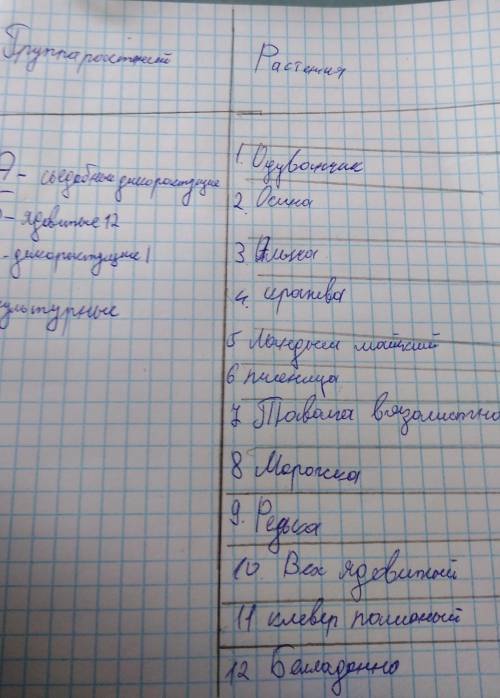 Группа растений
Растения
А - съедобные дикорастущие
- ядовитые 12
- дикорастущие 1
культурные
1. Одуванчик
2. Осина
3. Ольха
4. крапва
5 Ландыш майский
6 пшеница
7 Таволга вязолистна
8 Морошка
9. Редька
10. Вех ядовитый
11 клевер полионый
12 Белладонна